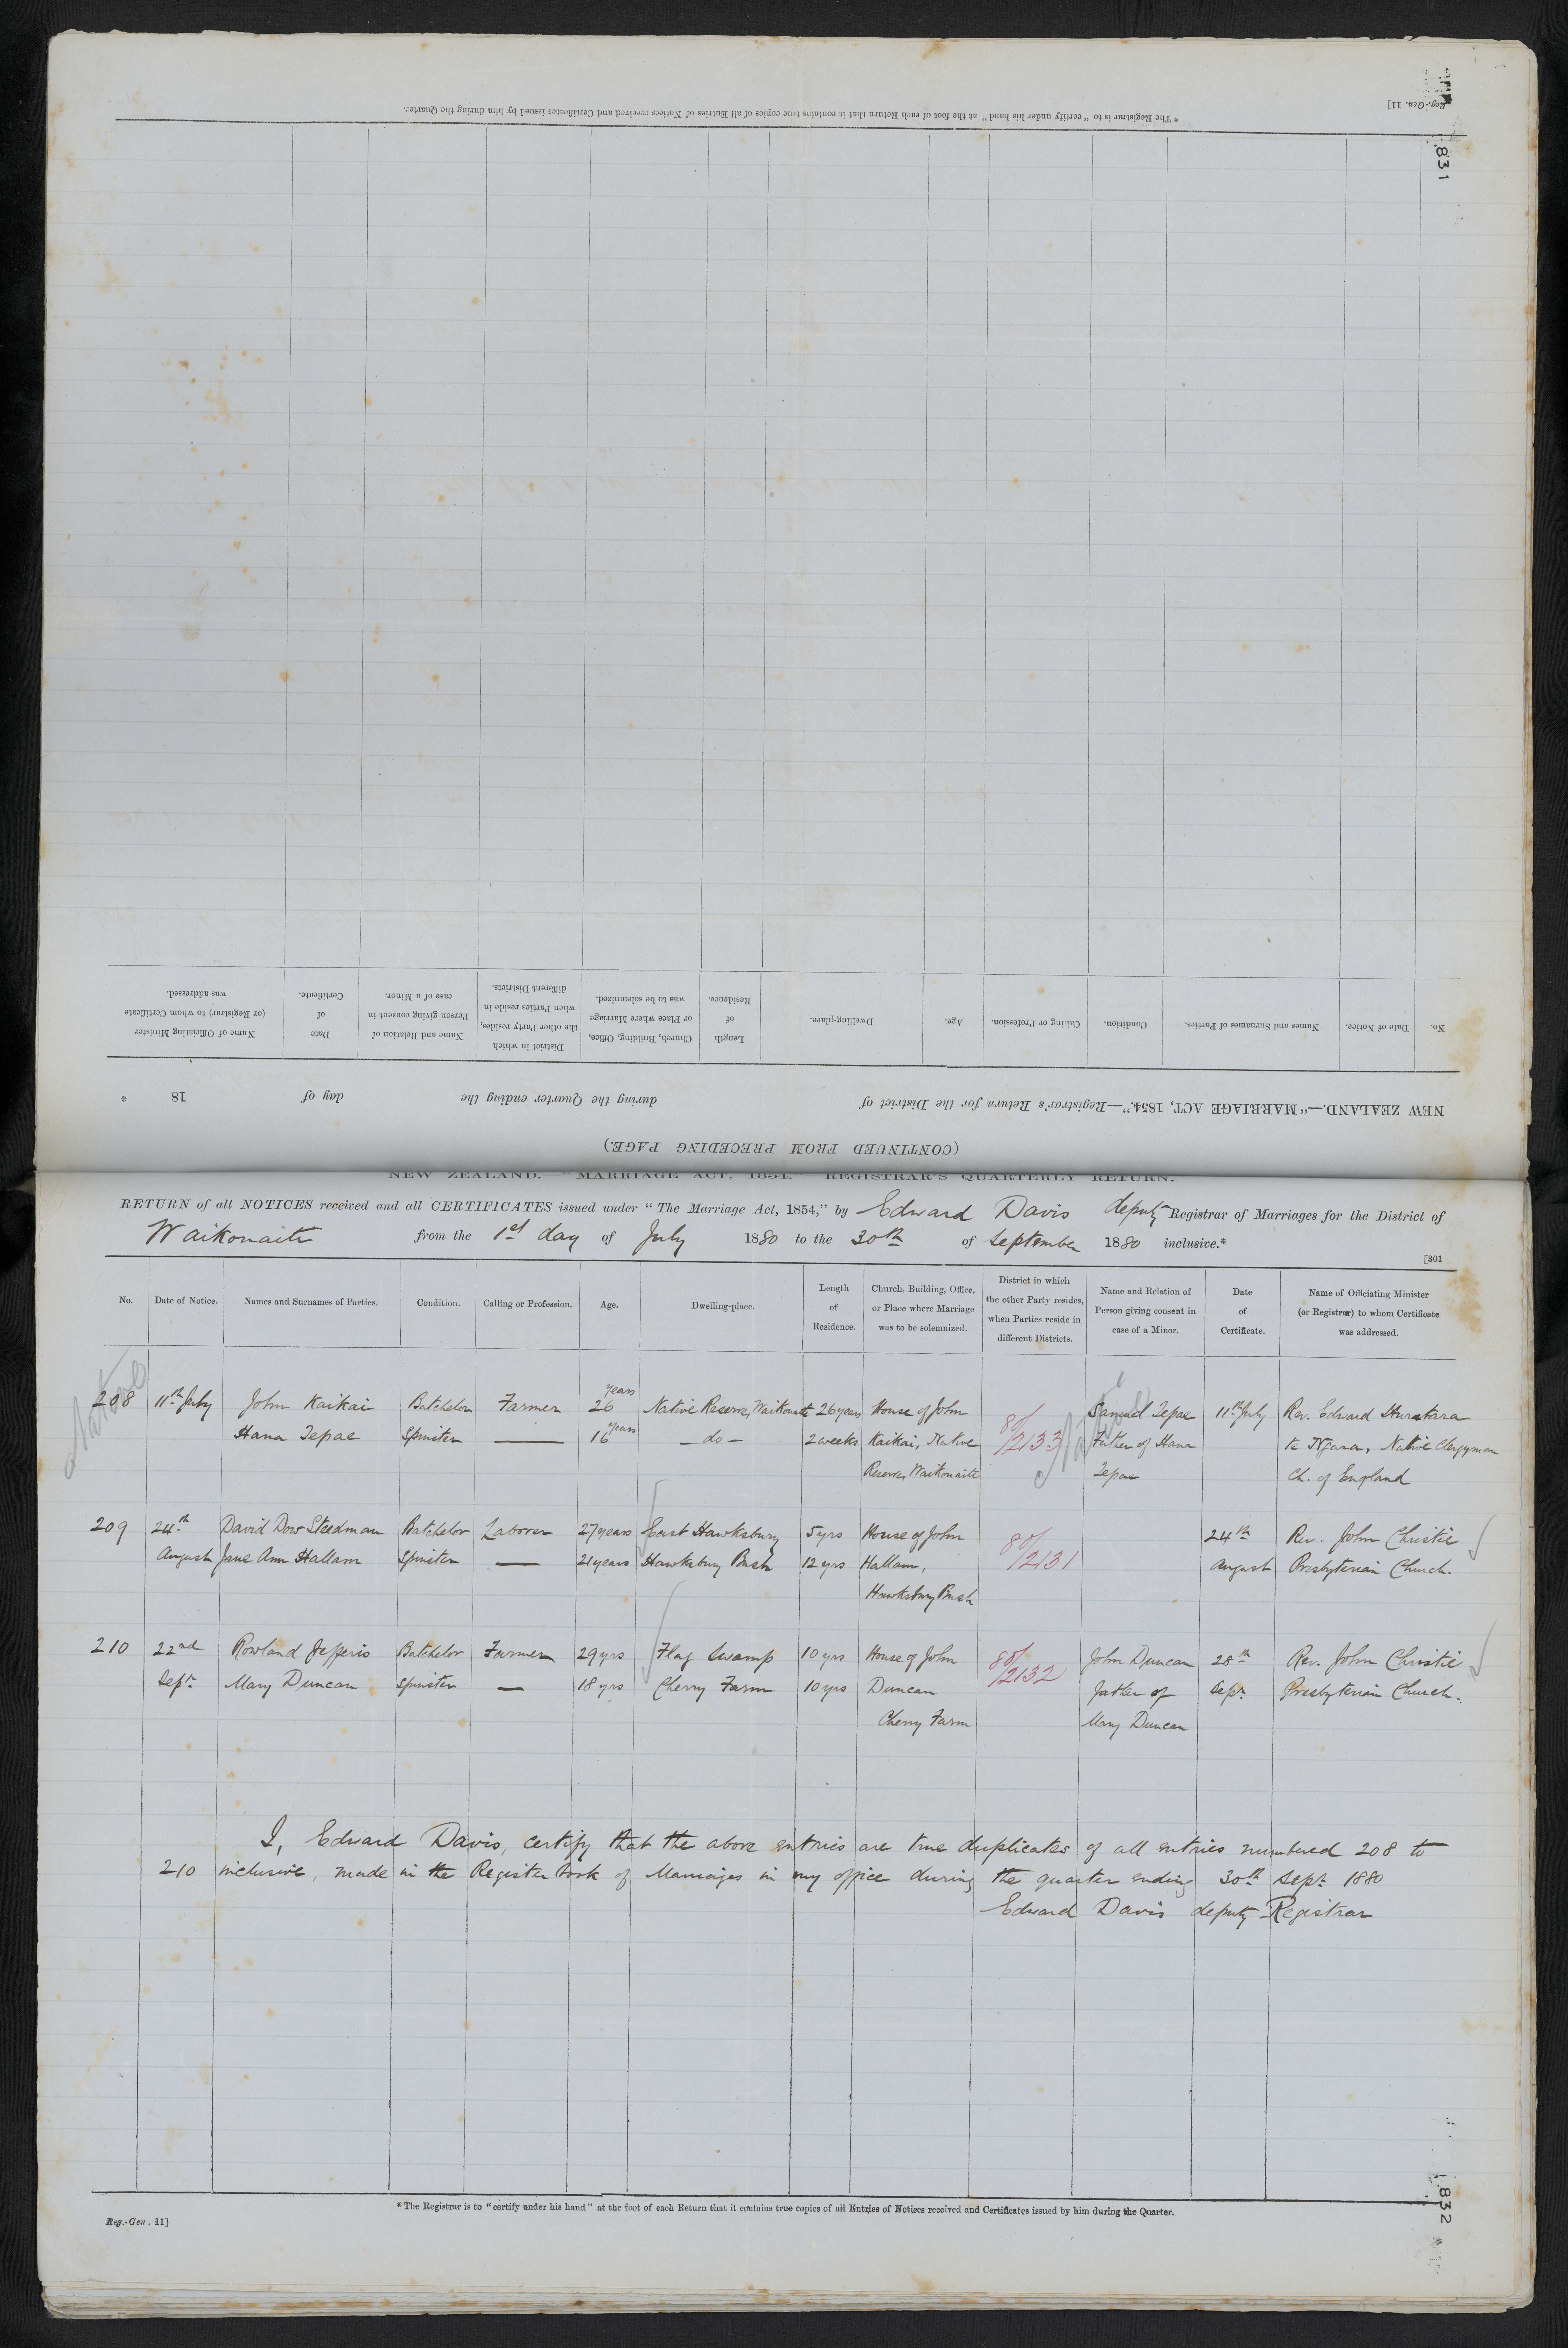 Reg.-Gen. 11]
831
* The Registrar is to "certify under his hand" at the foot of each Return that it contains true copies of all Entries of Notices received and Certificates issued by him during the Quarter.
(CONTINUED FROM PRECEDING PAGE.)
NEW ZEALAND.—"MARRIAGE ACT, 1854."—Registrar's Return for the District of during the Quarter ending the day of 18 *
No. Date of Notice. Names and Surnames of Parties. Condition. Calling or Profession. Age. Dwelling-place. Length of Residence. Church, Building, Office, or Place where Marriage was to be solemnized. District in which the other Party resides, when Parties reside in different Districts. Name and Relation of Person giving consent in case of a Minor. Date of Certificate. Name of Officiating Minister (or Registrar) to whom Certificate was addressed.
NEW ZEALAND. "MARRIAGE ACT, 1854." REGISTRAR'S QUARTERLY RETURN.
RETURN of all NOTICES received and all CERTIFICATES issued under "The Marriage Act, 1854," by Edward Davis deputy Registrar of Marriages for the District of
Waikouaiti from the 1st day of July 1880 to the 30th of September 1880 inclusive.*
[301
No. Date of Notice. Names and Surnames of Parties. Condition. Calling or Profession. Age. Dwelling-place. Length of Residence. Church, Building, Office, or Place where Marriage was to be solemnized. District in which the other Party resides, when Parties reside in different Districts. Name and Relation of Person giving consent in case of a Minor. Date of Certificate. Name of Officiating Minister (or Registrar) to whom Certificate was addressed.
Native
208 11th July John Kaikai Batchelor Farmer 26 years Native Reserve, Waikouaiti 26 years House of John 80/2133 Samuel Tepae 11th July Rev. Edward
Hana Tepae Spinster — 16 years — do — 2 weeks Kaikai, Native Father of Hana te Ngara, Native Clergyman
Reserve, Waikouaiti Tepae Ch. of England
209 24th David Dow Steedman Batchelor Laborer 27 years East Hawksbury 5 yrs House of John 80/2131 24th Rev. John Christie
August Jane Ann Hallam Spinster — 21 years Hawksbury Bush 12 yrs Hallam, August Presbyterian Church.
Hawksbury Bush
210 22nd Rowland Jefferis Batchelor Farmer 29 yrs Flag Swamp 10 yrs House of John 80/2132 John Duncan 28th Rev. John Christie
Sept. Mary Duncan Spinster — 18 yrs Cherry Farm 10 yrs Duncan father of Sept. Presbyterian Church.
Cherry Farm Mary Duncan
I, Edward Davis, certify that the above entries are true duplicates of all entries numbered 208 to
210 inclusive, made in the Register book of Marriages in my office during the quarter ending 30th Sept. 1880
Edward Davis deputy Registrar
* The Registrar is to "certify under his hand" at the foot of each Return that it contains true copies of all Entries of Notices received and Certificates issued by him during the Quarter.
Reg.-Gen. 11]
832